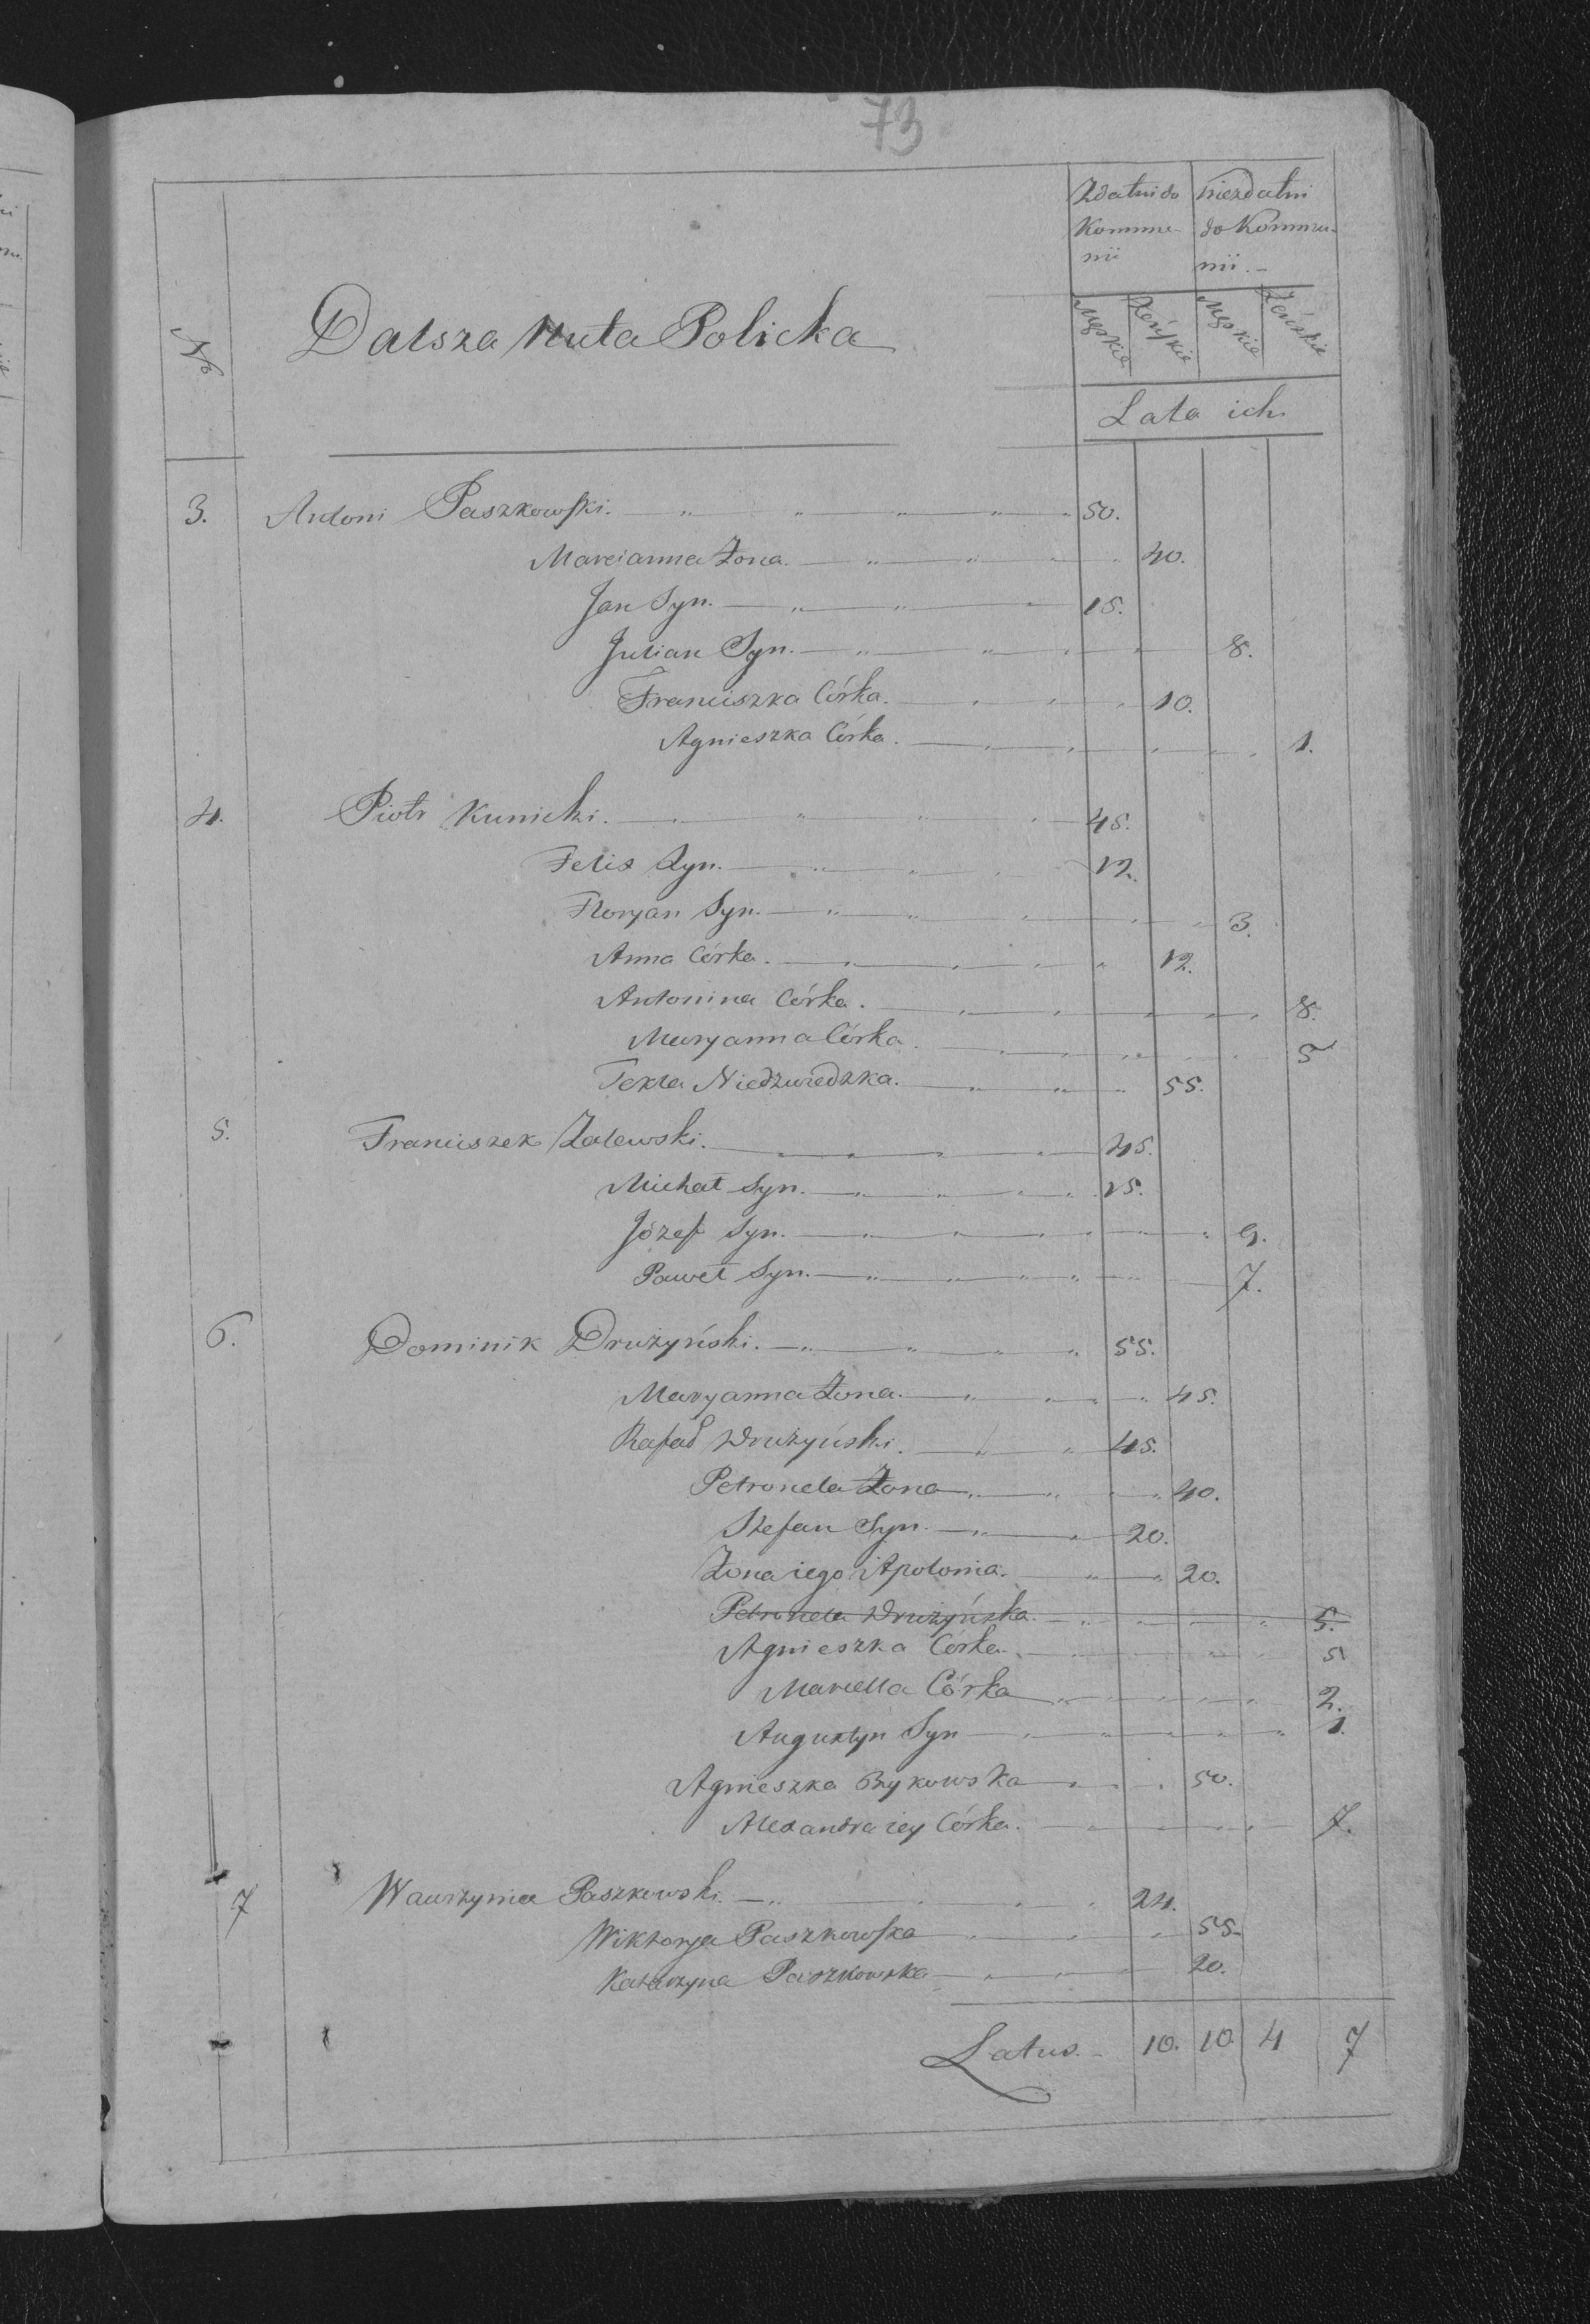 73
Zdatni do niezdatni
Kommu- do Kommu-
nii nii. -
No Męskie Żeńskie Męskie Żeńskie
Dalsza Huta Policka
Lata ich
3. Antoni Paszkowski. 50.
Marcianna Żona. 40.
Jan Syn. 15.
Julian Syn. 8.
Franciszka Córka. 10.
Agnieszka Córka. 1.
4. Piotr Kunicki. 45.
Felix Syn. 12.
Floryan Syn. 3.
Anna Córka. 12.
Antonina Córka. 8.
Maryanna Córka. 5
Tekla Niedzwiedzka. 55.
5. Franciszek Zalewski. 45.
Michał Syn. 15.
Józef Syn. 9.
Paweł Syn. 7.
6. Dominik Drużyński. 55.
Maryanna Żona. 45.
Rafał Drużyński. 45.
Petronela Żona 40.
Stefan Syn. 20.
Żona iego Apolonia. 20.
Petronela Drużyńska. 5.
Agnieszka Córka. 5
Marcella Córka 2.
Augustyn Syn 1.
Agnieszka Bykowska 50.
Alexandra iey Córka. 7.
7 Wawrzyniec Paszkowski. 24.
Wiktorya Paszkowska 55
Katarzyna Paszkowska 20.
Latus. 10. 10. 4 7